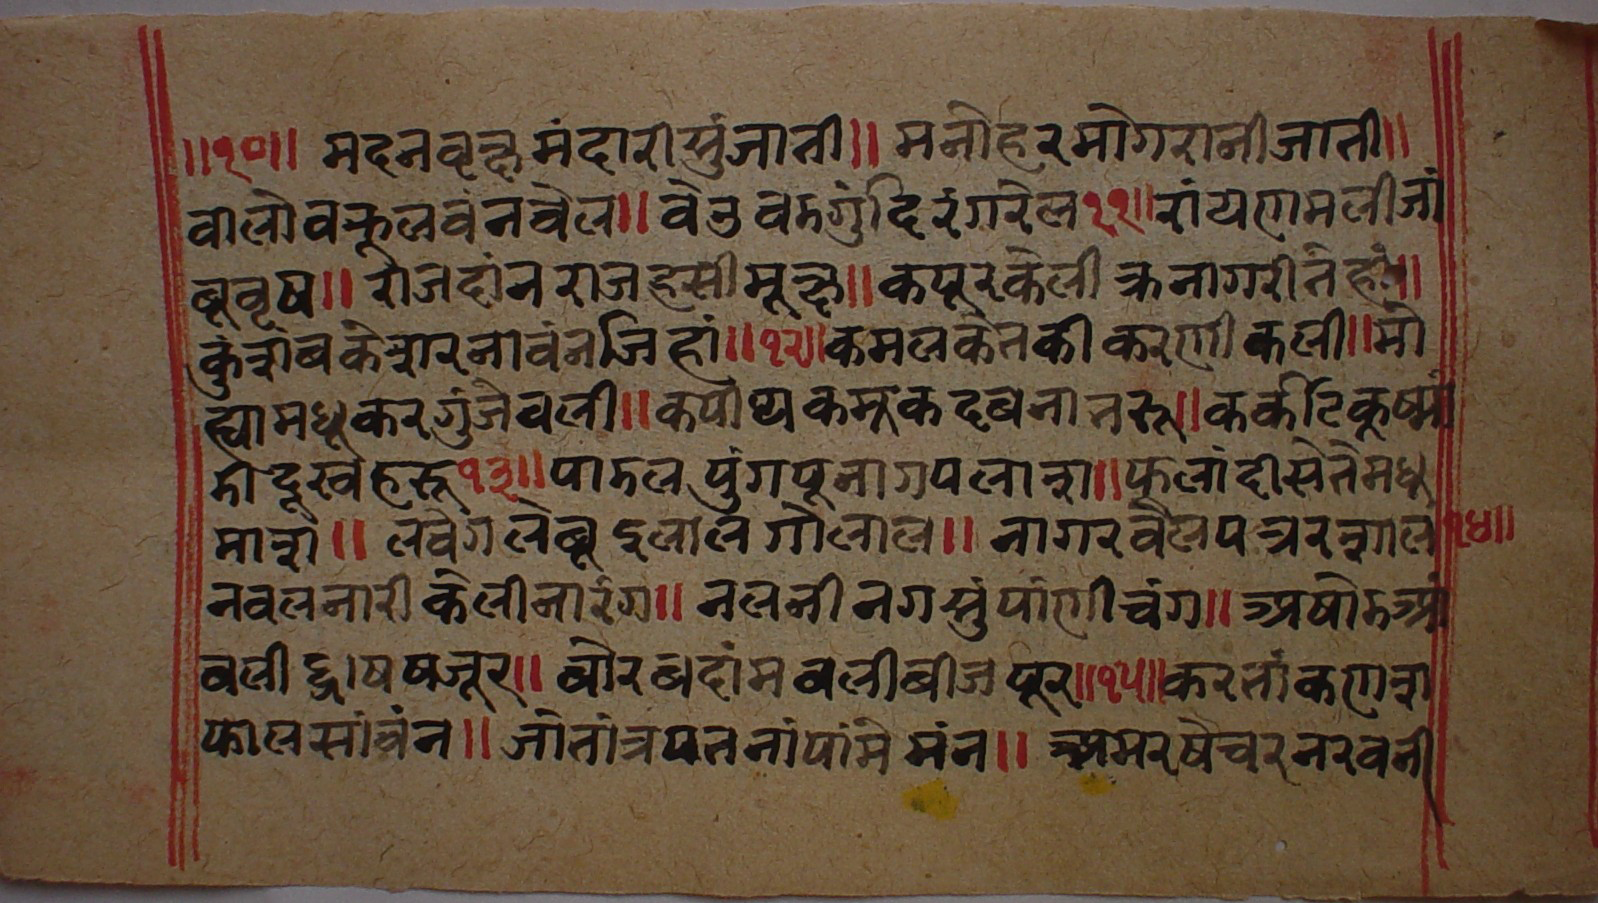 ॥१०॥ मदनवृक्ष मंदारीसुं जाती॥ मनोहर मोगरानी जाती॥
वालो वकूल वंन वेल॥ वेउ वडगुंदि रंगरेल ११॥ रांयण मली जां
बू वृष॥ राजदांन राजहसी मूक्ष॥ कपूर केली कनागरी तेहां॥
कुंशंब केशर नावंन जिहां॥१२॥ कमल केतकी करणी कली॥ मो
ह्या मधूकर गुंजे वली॥ कपीथ कम्रूक दबना तरू॥ कर्कोटि कूष्मां
डी दूख हरू १३॥ पाडल पुंग पूनाग पलाश॥ फूलां दीसे ते मधु
माश॥ लवेग लेबू इलाल गोलाल॥ नागरवेल पत्र रशाल १४॥
नवल नारी केली नारंग॥ नलनी नग सुं पांणी चंग॥ अषोड आं
बली द्राष षजूर॥ बोर बदांम वली बीजपूर॥१५॥ करतां कणश
फोल सांवंन॥ जोतां त्रपत नां पांमे मंन॥ अमर षेचर नर वनी